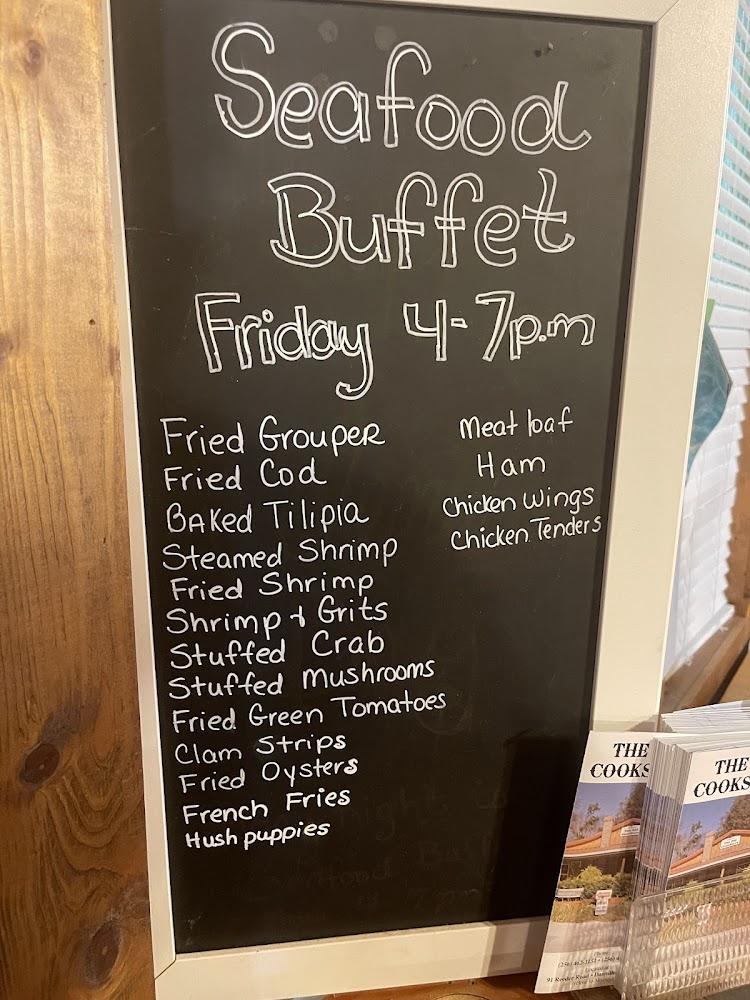 Seafood
Buffet
Friday 4-7p.m
Fried Grouper
Fried Cod
Baked Tilipia
Steamed Shrimp
Fried Shrimp
Shrimp & Grits
Stuffed Crab
Stuffed Mushrooms
Fried Green Tomatoes
Clam Strips
Fried Oysters
French Fries
Hush puppies
Meat loaf
Ham
Chicken Wings
Chicken Tenders
THE
COOKS
THE
COOKS